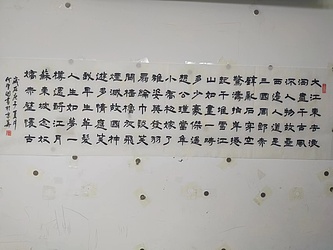 大江東去浪
淘盡千古風
流人物故壘
西邊人道是
三國周郎赤
壁亂石穿空
驚濤拍岸捲
起千堆雪江
山如畫一時
多少豪傑遙
想公瑾當年
小喬初嫁了
雄姿英發羽
扇綸巾談笑
間檣櫓灰飛
煙滅故國神
遊多情應笑
我早生華髮
人生如夢一
樽還酹江月
蘇東坡念奴
嬌赤壁懷古